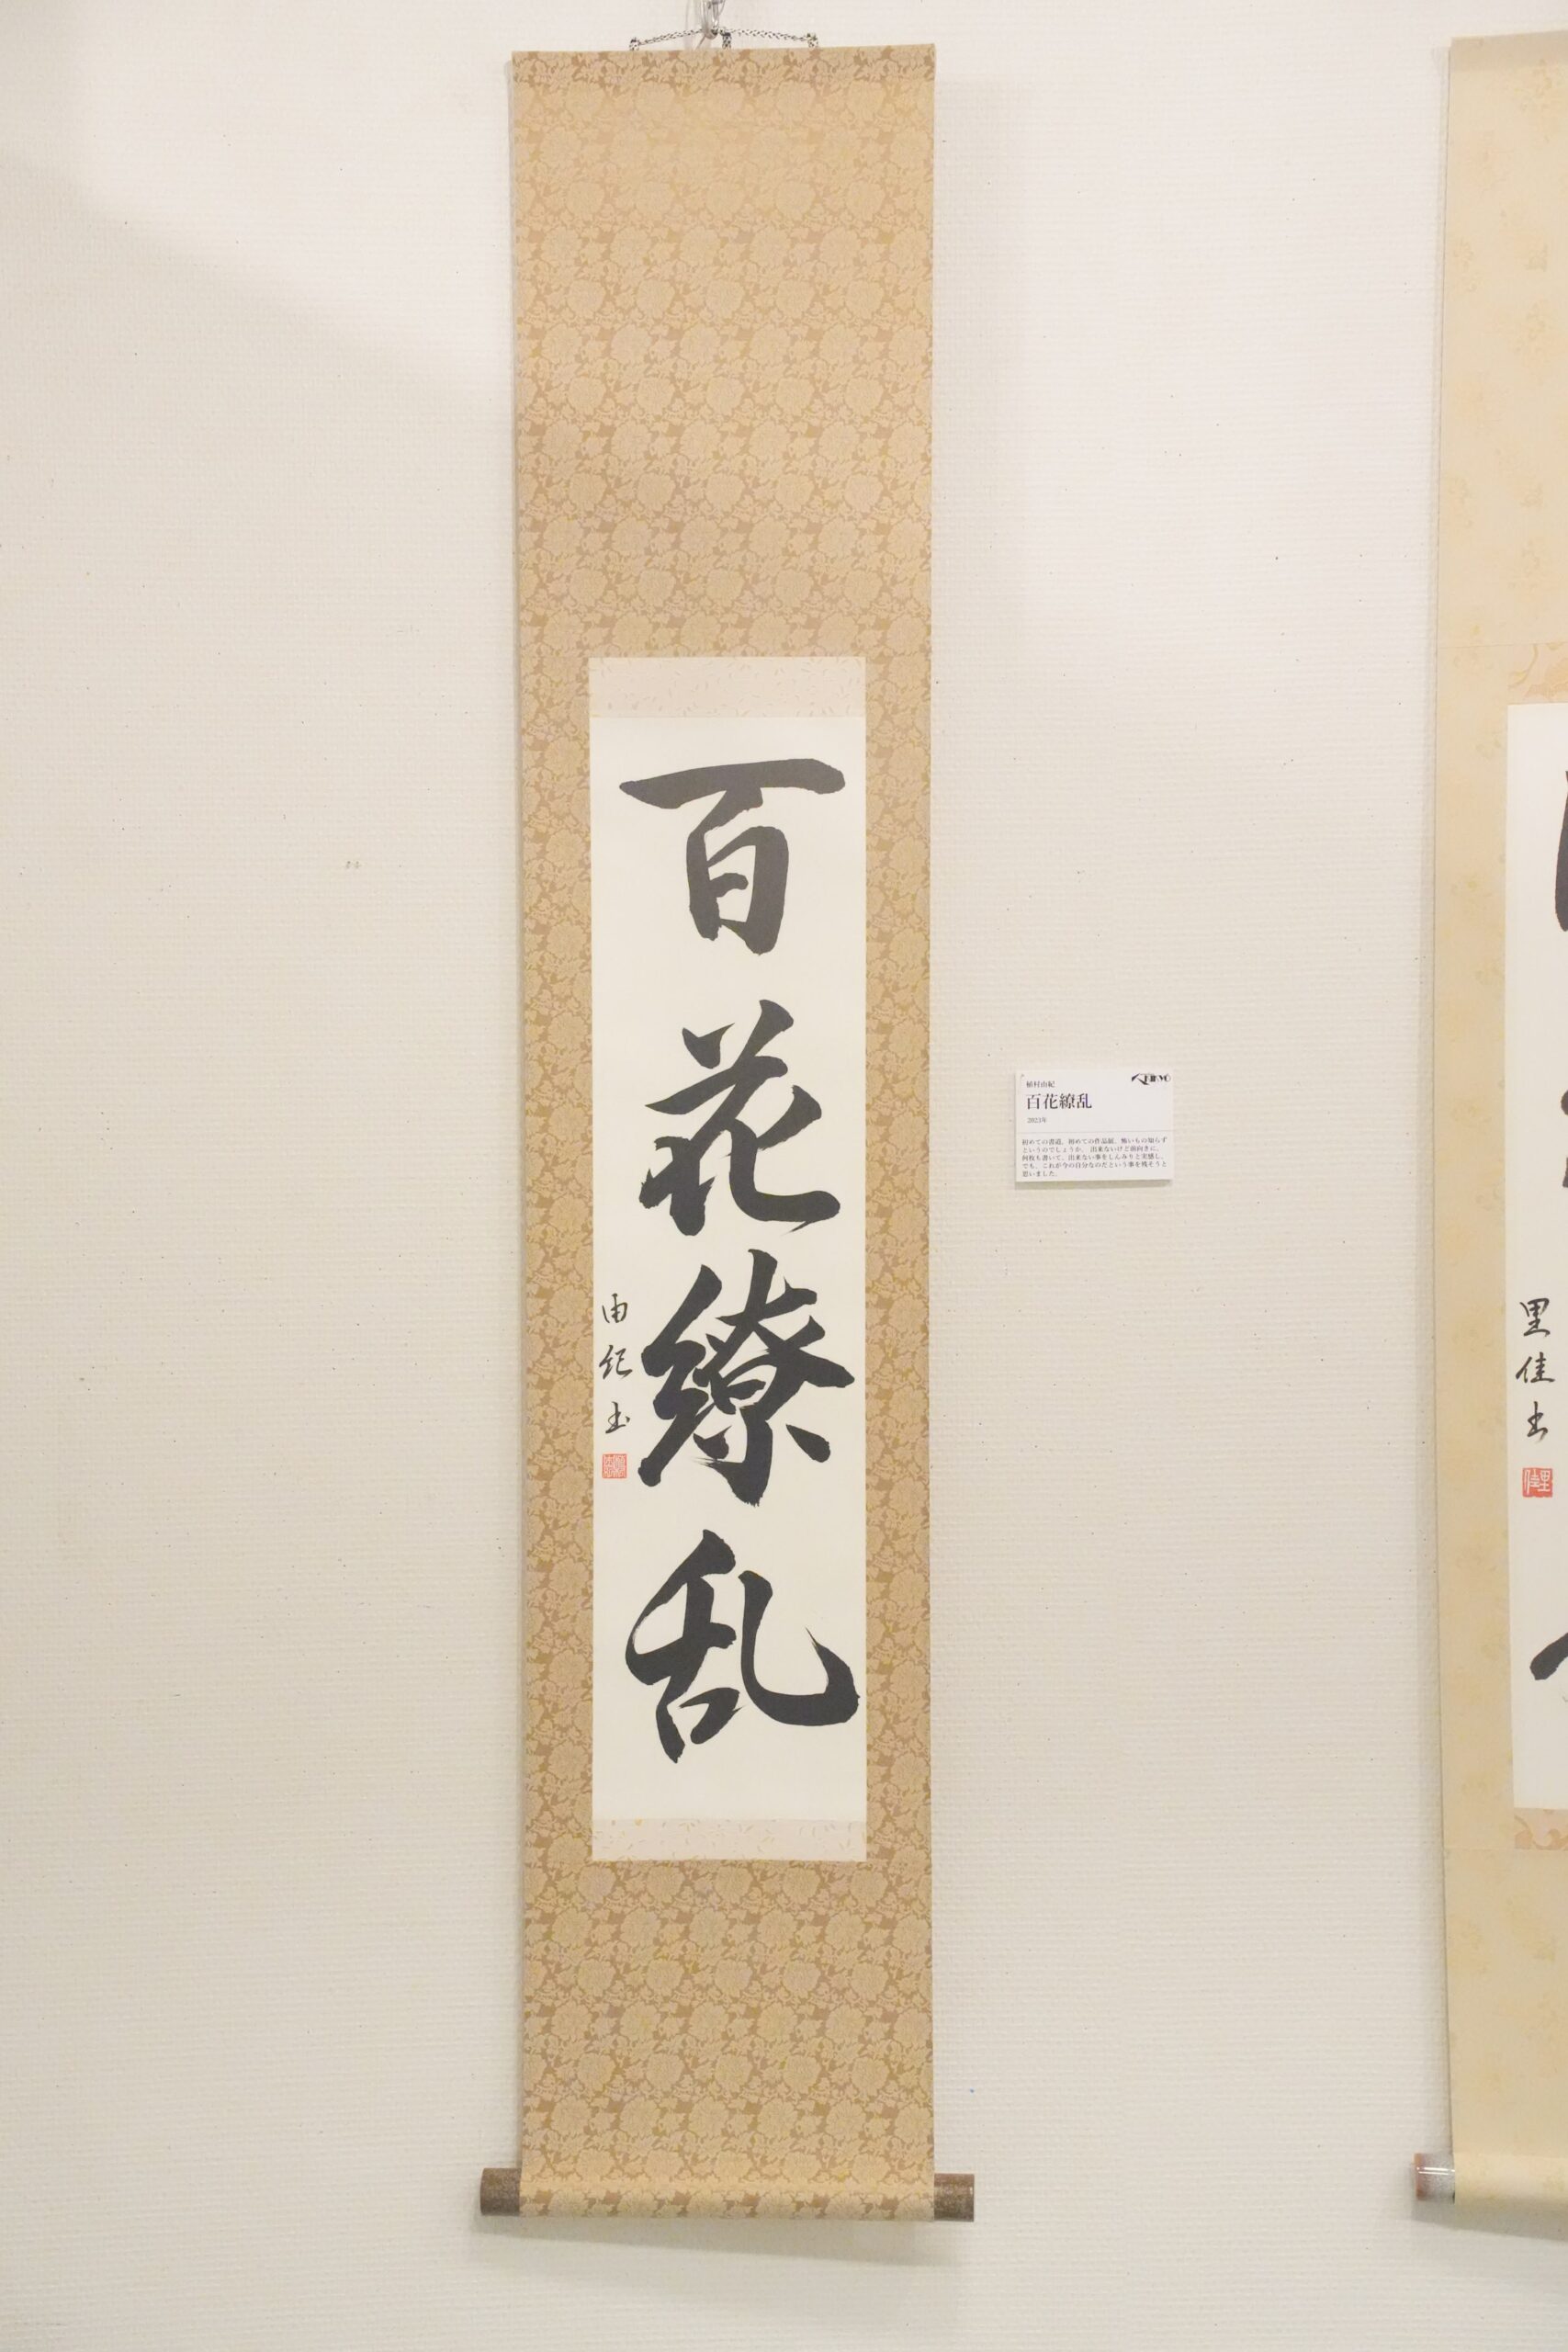 百花繚乱
由紀書
植村由紀
百花繚乱
2023年
初めての書道、初めての作品展。怖いもの知らず
というのでしょうか。出来ないけど前向きに。
何枚も書いて、出来ない事をしんみりと実感し、
でも、これが今の自分なのだという事を残そうと
思いました。
里佳書
里佳